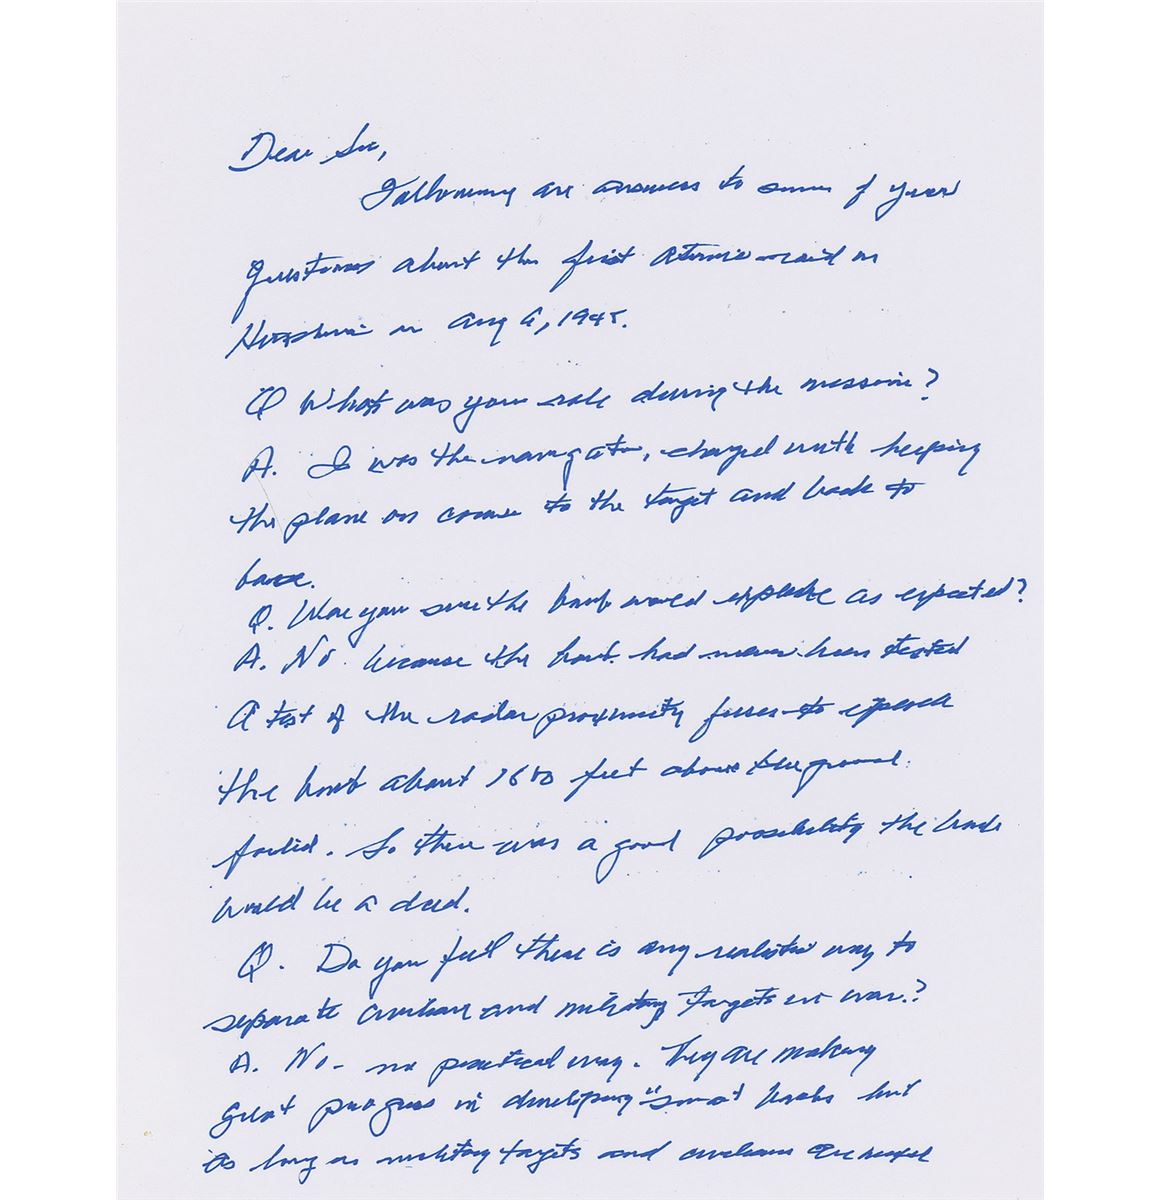 Dear Sir,
Following are answers to some of your
questions about the first atomic raid on
Hiroshima on Aug 6, 1945.
Q What was your role during the mission?
A. I was the navigator, charged with keeping
the plane on course to the target and back to
base.
Q. Were you sure the bomb would explode as expected?
A. No because the bomb had never been tested
A test of the radar proximity fuses to explode
the bomb about 1600 feet above the ground
failed. So there was a good possibility the bomb
would be a dud.
Q. Do you feel there is any realistic way to
separate civilian and military targets in war?
A. No - no practical way. They are making
great progress in developing "smart" bombs but
as long as military targets and civilians are